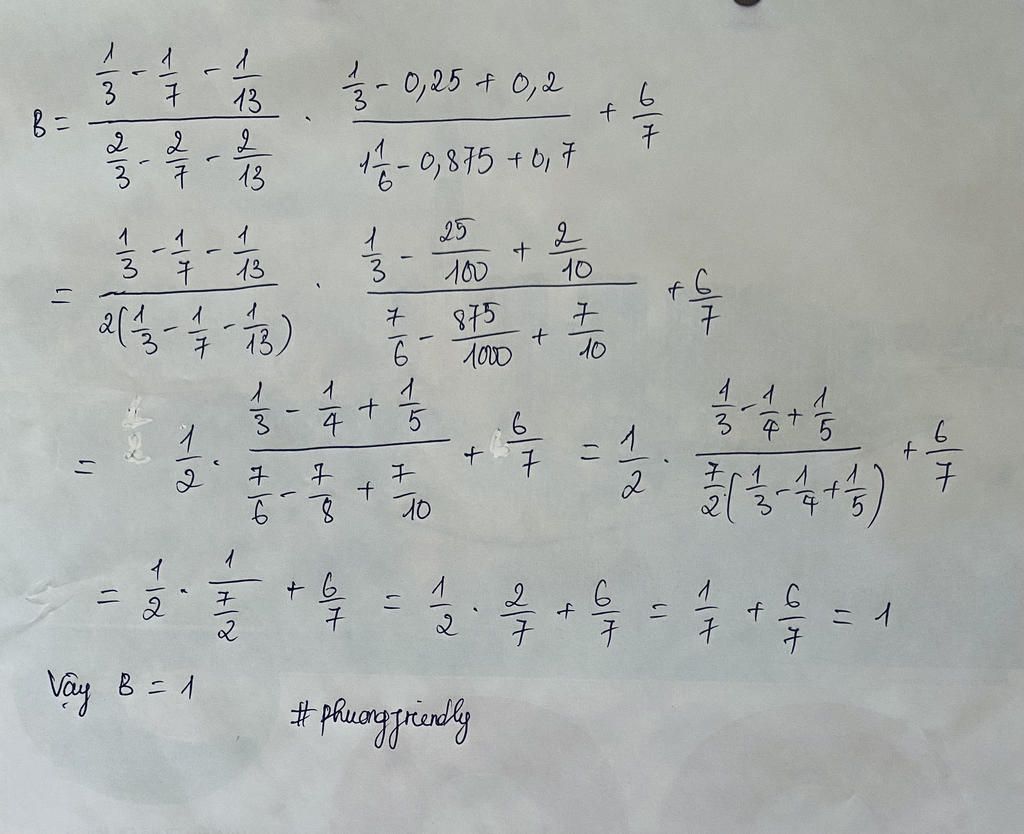 B = \frac{\frac{1}{3} - \frac{1}{7} - \frac{1}{13}}{\frac{2}{3} - \frac{2}{7} - \frac{2}{13}} . \frac{\frac{1}{3} - 0,25 + 0,2}{1\frac{1}{6} - 0,875 + 0,7} + \frac{6}{7}
= \frac{\frac{1}{3} - \frac{1}{7} - \frac{1}{13}}{2(\frac{1}{3} - \frac{1}{7} - \frac{1}{13})} . \frac{\frac{1}{3} - \frac{25}{100} + \frac{2}{10}}{\frac{7}{6} - \frac{875}{1000} + \frac{7}{10}} + \frac{6}{7}
= \frac{1}{2} . \frac{\frac{1}{3} - \frac{1}{4} + \frac{1}{5}}{\frac{7}{6} - \frac{7}{8} + \frac{7}{10}} + \frac{6}{7} = \frac{1}{2} . \frac{\frac{1}{3} - \frac{1}{4} + \frac{1}{5}}{\frac{7}{2}(\frac{1}{3} - \frac{1}{4} + \frac{1}{5})} + \frac{6}{7}
= \frac{1}{2} . \frac{1}{\frac{7}{2}} + \frac{6}{7} = \frac{1}{2} . \frac{2}{7} + \frac{6}{7} = \frac{1}{7} + \frac{6}{7} = 1
Vậy B = 1
#phuongfriendly